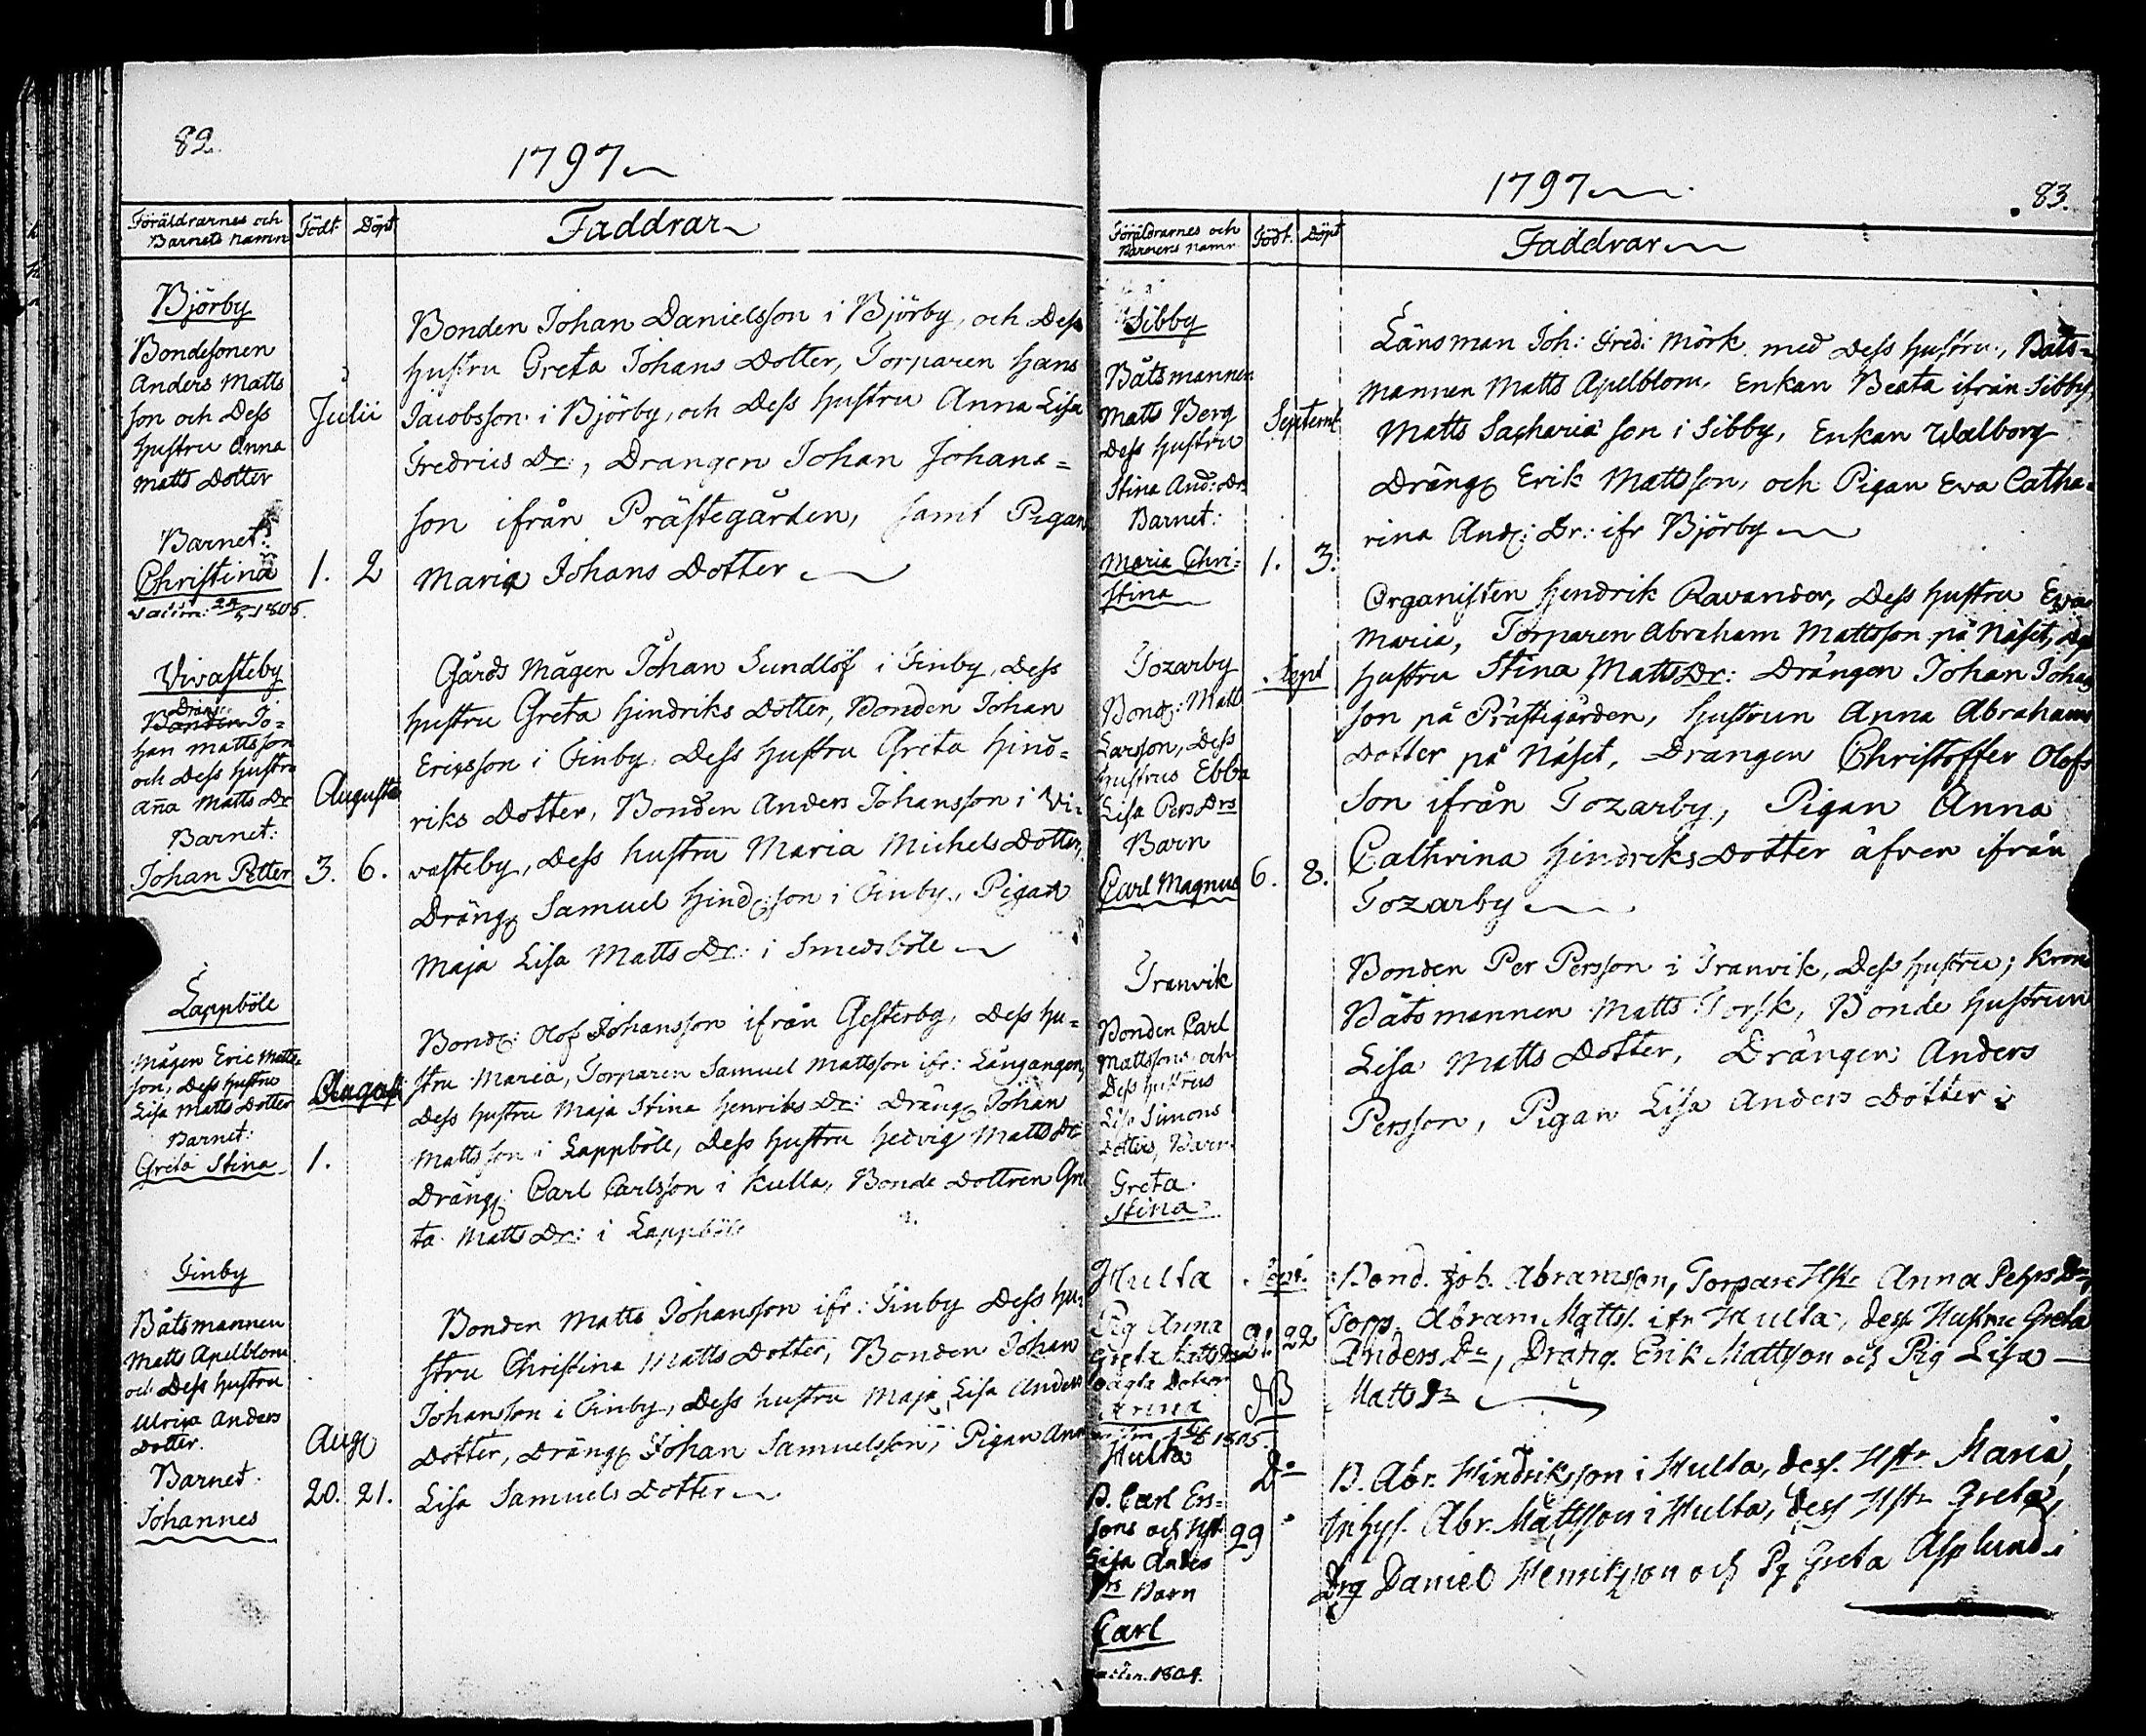 82.
1797
Föräldrarnes och
Barnets namn
Födt
Döpt
Faddrar
Björby
Bondesonen
Anders Matts
son och Dess
Hustru Anna
Matts Dotter
Barnet:
Christina
Vaccin: 1805.
Julii
1. 2
Bonden Johan Danielsson i Björby, och Dess
hustru Greta Johans Dotter, Torparen Hans
Jacobsson i Björby, och Dess hustru Anna Lisa
Fredrics Dr:, Drangen Johan Johans=
son ifrån Prästegården, samt Pigan
Maria Johans Dotter
Vivasteby
Dräng:
Bonden Jo=
han Mattsson
och Dess hustru
Aña Matts Dr
Barnet:
Johan Petter
Augusti
3. 6.
Gårds Mågen Johan Sundlöf i Finby, Dess
hustru Greta Hindriks Dotter, Bonden Johan
Ericsson i Finby, Dess hustru Greta Hind=
riks Dotter, Bonden Anders Johansson i Vi=
vasteby, Dess hustru Maria Michels Dotter,
Dräng Samuel Hind:son i Finby, Pigan
Maja Lisa Matts Dr: i Smedsböle
Lappböle
Mågen Eric Matts=
son, Dess hustru
Lisa Matts Dotter
Barnet:
Greta Stina
August
1.
Bond: Olof Johansson ifrån Gesterby, Dess hu=
stru Maria, Torparen Samuel Mattsson ifr: Långangen,
Dess hustru Maja Stina Henriks Dr: Dräng Johan
Mattsson i Lappböle, Dess hustru Hedvig Matts Dr
Dräng: Carl Carlsson i Kulla, Bonde Dottren Gre
ta Matts Dr: i Lappböle
Finby
Båtsmannen
Matts Apelblom
och Dess hustru
Ulrica Anders
Dotter.
Barnet:
Johannes
Aug
20. 21.
Bonden Matts Johansson ifr: Finby Dess hu=
stru Christina Matts Dotter, Bonden Johan
Johansson i Finby, Dess hustru Maja Lisa Anders
Dotter, Dräng Johan Samuelsson, Pigan Anna
Lisa Samuels Dotter
1797
83.
Föräldrarnes och
Barnens namn
Födt.
Döpt
Faddrar
Sibby
Båtsmannen
Matts Berg
Dess hustru
Stina And: Dr
Barnet:
Maria Chri=
stina
Septemb
1. 3.
Länsman Joh: Fred: Mörk med Dess hustru, Båts=
mannen Matts Apelblom, Enkan Beata ifrån Sibby,
Matts Sacharia son i Sibby, Enkan Walborg
Dräng Erik Mattsson, och Pigan Eva Catha=
rina And: Dr: ifr Björby
Tozarby
Bond: Matts
Larsson, Dess
Hustrus Ebba
Lisa Pers Drs
Barn
Carl Magnus
Sept
6. 8.
Organisten Hendrik Ravander, Dess hustru Eva
Maria, Torparen Abraham Mattsson på Näset, Dess
hustru Stina Matts Dr: Drängen Johan Johans
son på Prästigården, hustrun Anna Abrahams
Dotter på Näset, Drangen Christoffer Olofs
son ifrån Tozarby, Pigan Anna
Cathrina Hindriks Dotter äfven ifrån
Tozarby
Tranvik
Bonden Carl
Mattssons och
Dess hustrus
Lisa Simons
Dotters, Barn
Greta
Stina
Bonden Per Persson i Tranvik, Dess hustru; Krono
Båtsmannen Matts Torsk, Bonde hustrun
Lisa Matts Dotter, Drängen Anders
Persson, Pigan Lisa Anders Dotter
Hulta
Pig Anna
Greta Matts Drs
oägta Dotter
1805.
Sept.
21. 22
Bond. Joh. Abramsson, Torpare Hstr Anna Pehrs Dr,
Torp. Abram Matts. ifr Hulta, dess Hustru Greta
Anders Dr, Dräng. Erik Mattsson och Pig Lisa
Matts Dr
Hulta
B. Carl Ers=
sons och Hst
Lisa Anders
Drs Barn
Carl
1804.
Do
29
B. Abr. Hindriksson i Hulta, dess Hstr Maria,
Inhys. Abr. Mattsson i Hulta, dess Hstr Greta,
Drg Daniel Henriksson och Pg Greta Asplund